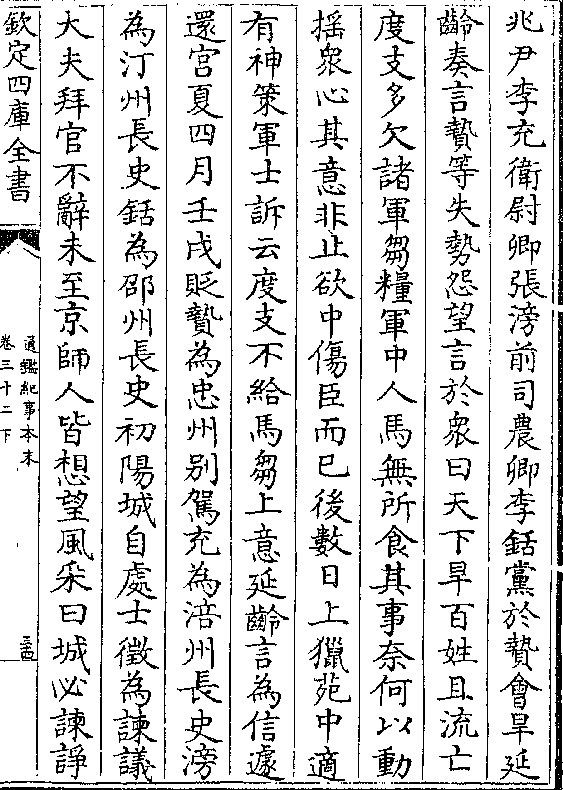 兆尹李充衛尉卿張滂前司農卿李銛黨於贄會旱延
齡奏言贄等失勢怨望言於衆曰天下旱百姓且流亡
度支多欠諸軍芻糧軍中人馬無所食其事奈何以動
揺衆心其意非止欲中傷臣而已後數日上獵苑中適
有神策軍士訴云度支不給馬芻上意延齡言為信遽
還宮夏四月壬戌貶贄為忠州别駕充為涪州長史滂
為汀州長史銛為邵州長史初陽城自處士徵為諫議
大夫拜官不辭未至京師人皆想望風采曰城必諫諍
欽定四庫全書
通鑑紀事本末
卷三十二下